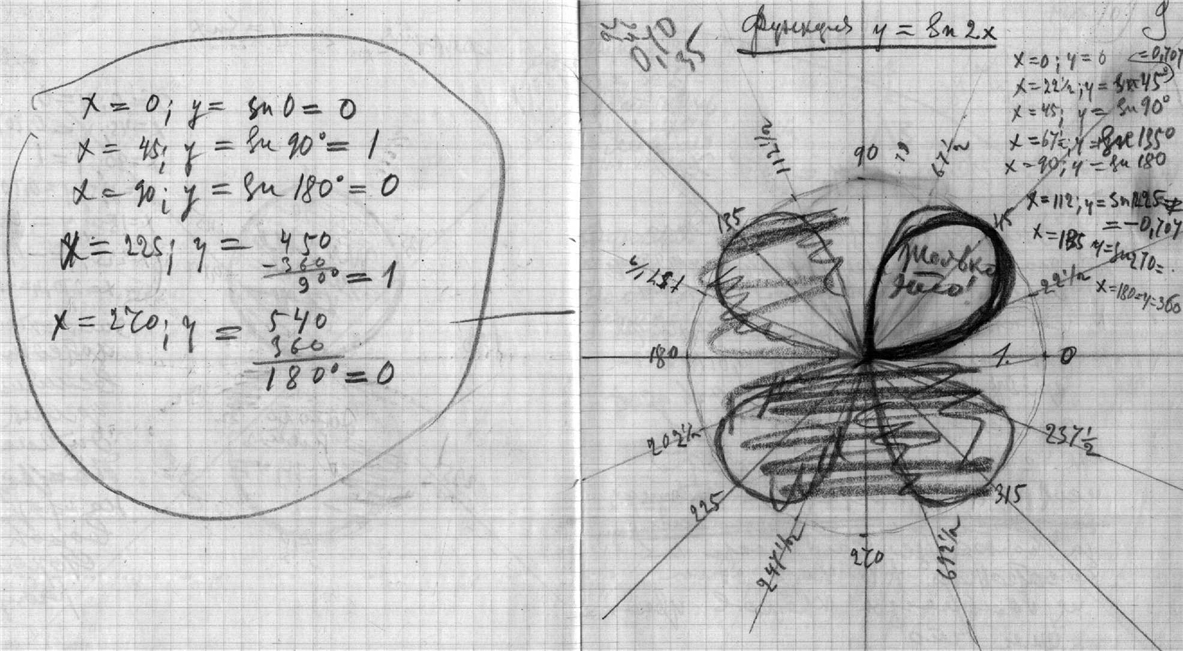 x = 0; y = sn 0 = 0
x = 45; y = sn 90° = 1
x = 90; y = sn 180° = 0
x = 225; y = 450
-360
90° = 1
x = 270; y = 540
360
180° = 0
Функция y = sn 2x
9
x=0; y=0
=0,707
x=22½; y=sn45°
x=45; y=sn90°
x=67½; y=sn135°
x=90; y=sn180
x=112; y=sn225=
=-0,707
x=135 y=sn270=
x=180=y=360
90
67½
112½
135
45
157½
22½
только
180
1.
0
202½
237½
225
315
247½
270
692½